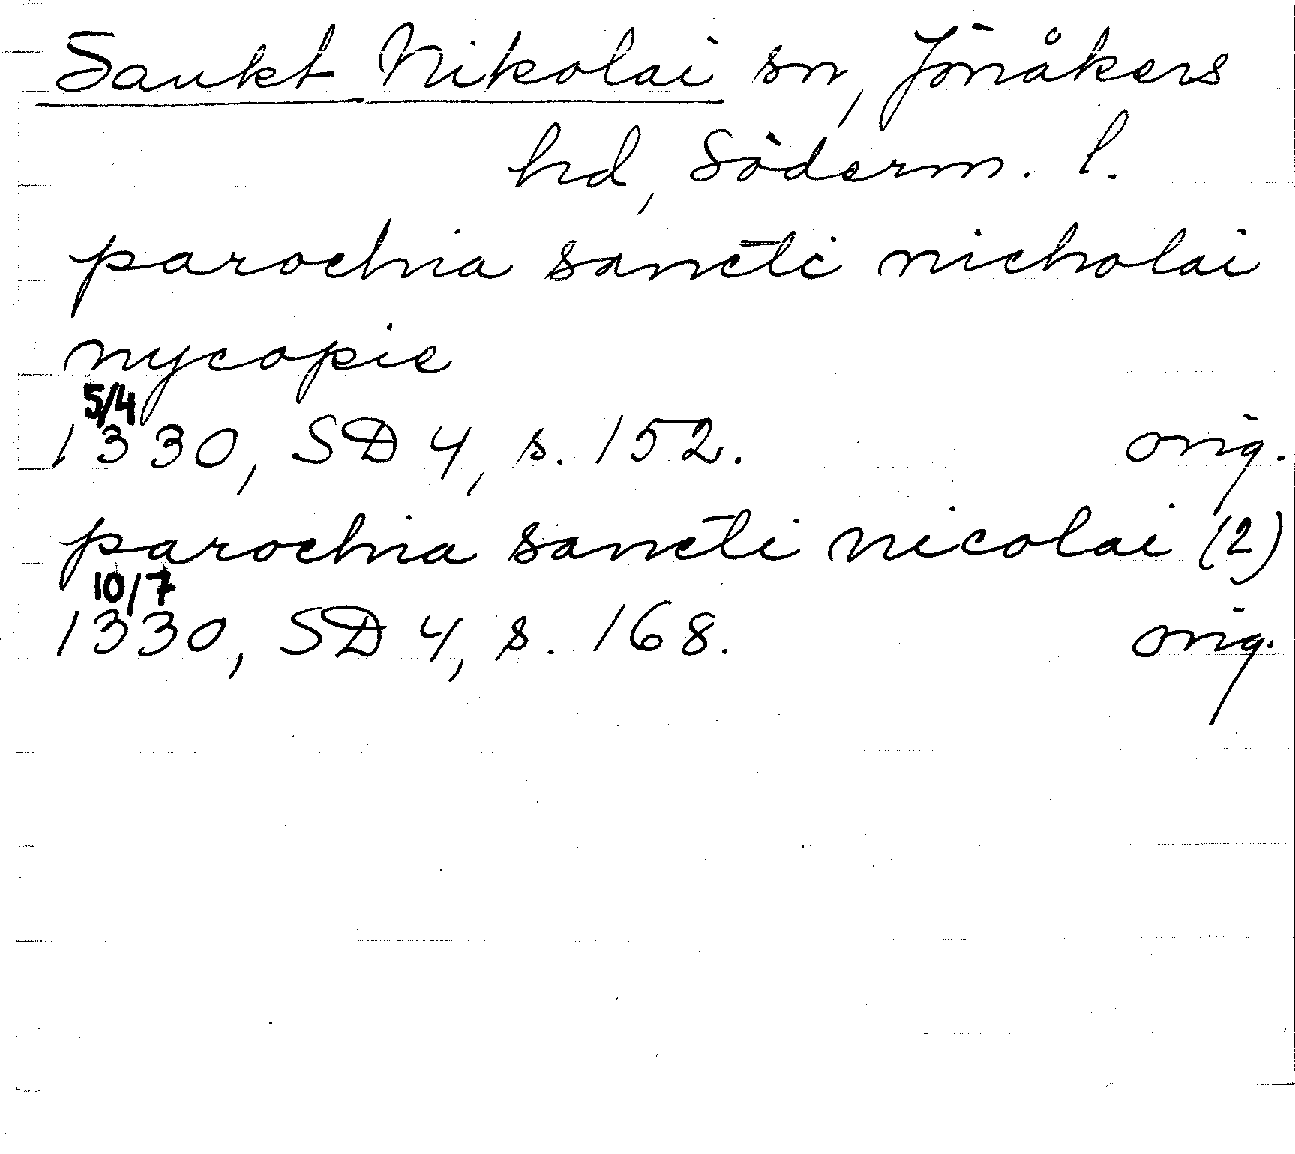 Sankt Nikolai sn, Jönåkers
hd, Söderm. l.
parochia sancti nicholai
nycopie
5/4
1330, SD 4, s. 152. orig.
parochia sancti nicolai (2)
10/7
1330, SD 4, s. 168. orig.